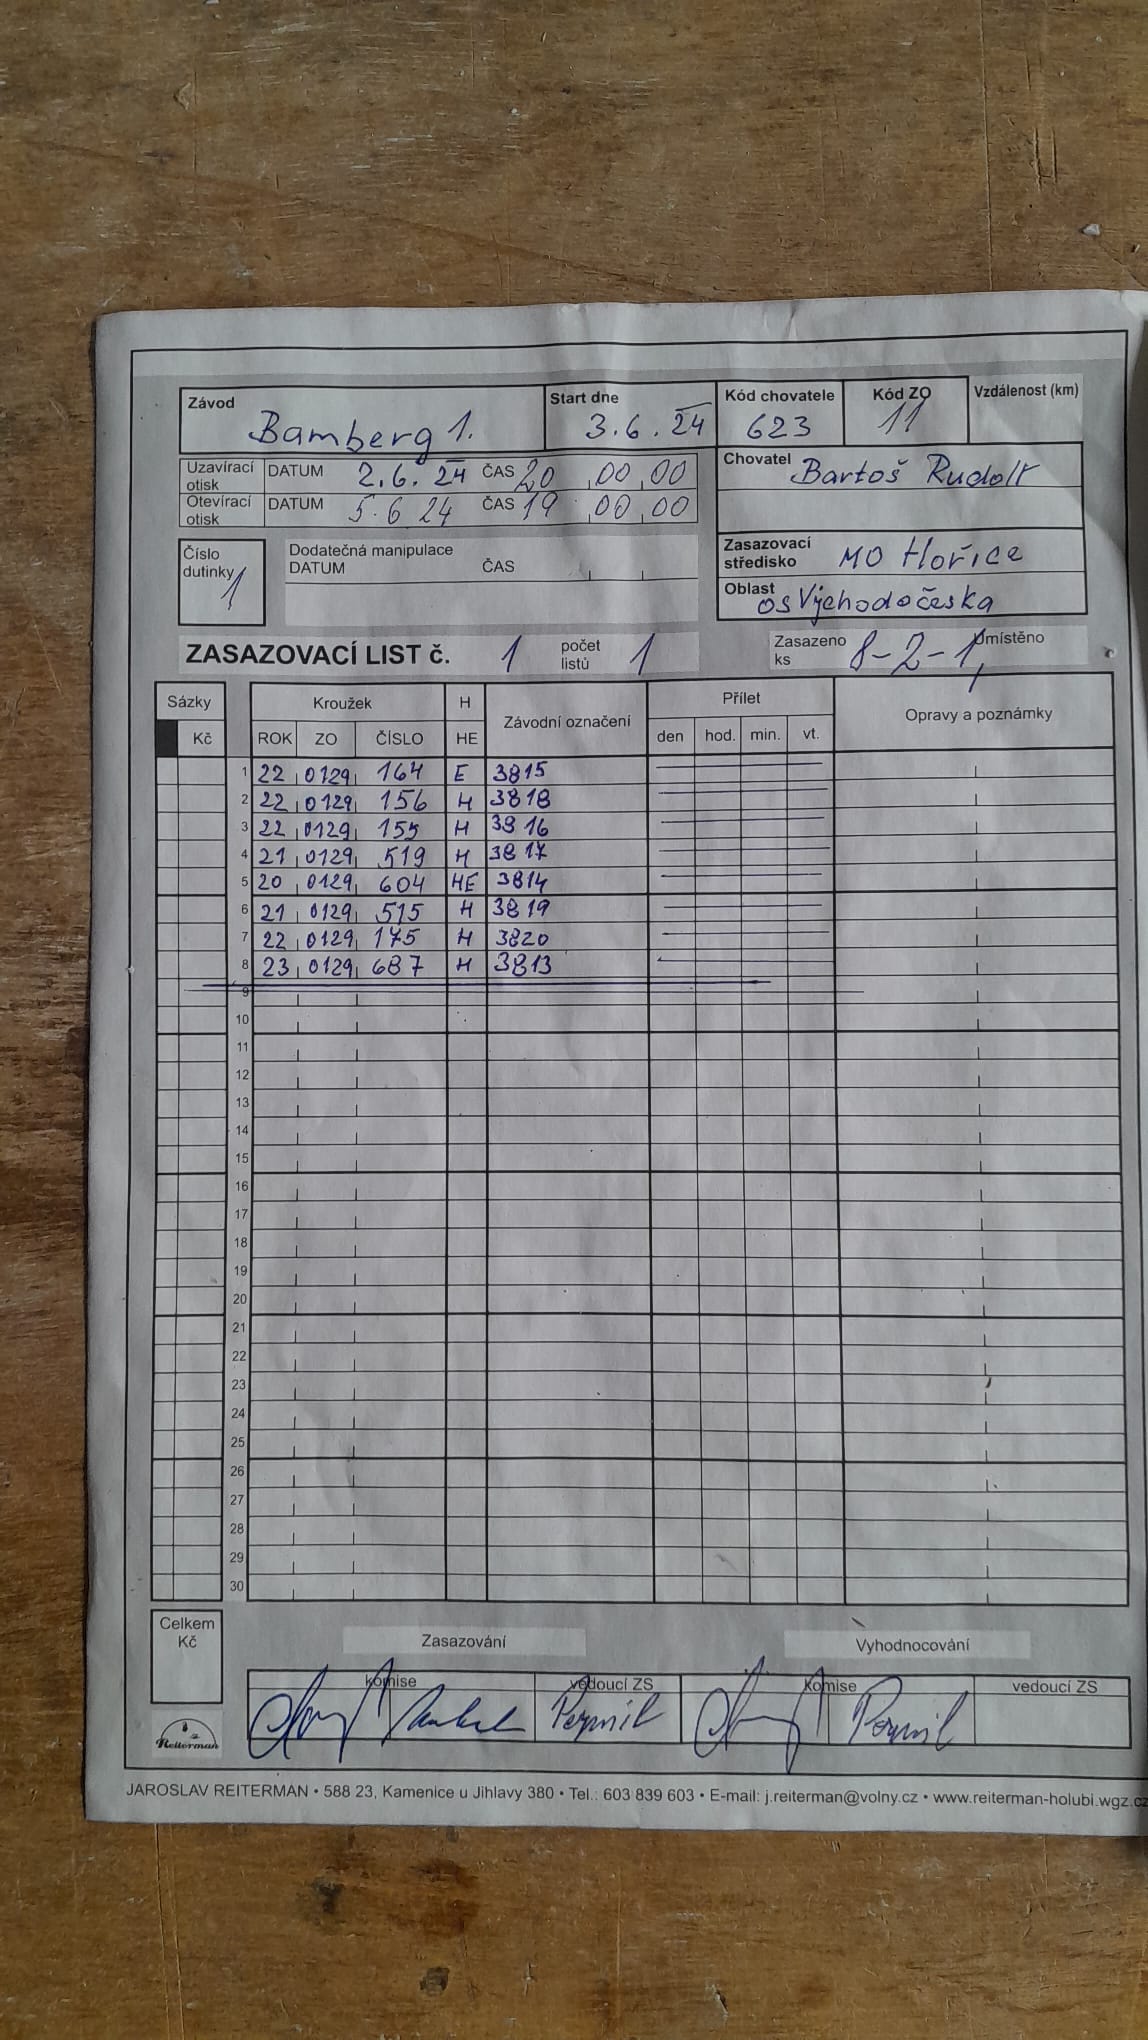 Závod Start dne Kód chovatele Kód ZO Vzdálenost (km)
Bamberg 1. 3.6.24 623 11
Uzavírací otisk DATUM 2.6.24 ČAS 20 00 00
Otevírací otisk DATUM 5.6 24 ČAS 19 00 00
Chovatel Bartoš Rudolf
Číslo dutinky 1
Dodatečná manipulace
DATUM ČAS
Zasazovací středisko MO Hořice
Oblast OS Východočeska
ZASAZOVACÍ LIST č. 1 počet listů 1 Zasazeno ks 8-2-1, Umístěno
Sázky Kroužek H Závodní označení Přílet Opravy a poznámky
Kč ROK ZO ČÍSLO HE den hod. min. vt.
1 22 0129 164 E 3815
2 22 0129 156 H 3818
3 22 0129 155 H 3816
4 21 0129 519 H 3817
5 20 0129 604 HE 3814
6 21 0129 515 H 3819
7 22 0129 175 H 3820
8 23 0129 687 H 3813
9
10
11
12
13
14
15
16
17
18
19
20
21
22
23
24
25
26
27
28
29
30
Celkem Kč
Zasazování Vyhodnocování
komise vedoucí ZS komise vedoucí ZS
Reiterman
JAROSLAV REITERMAN • 588 23, Kamenice u Jihlavy 380 • Tel.: 603 839 603 • E-mail: j.reiterman@volny.cz • www.reiterman-holubi.wgz.cz